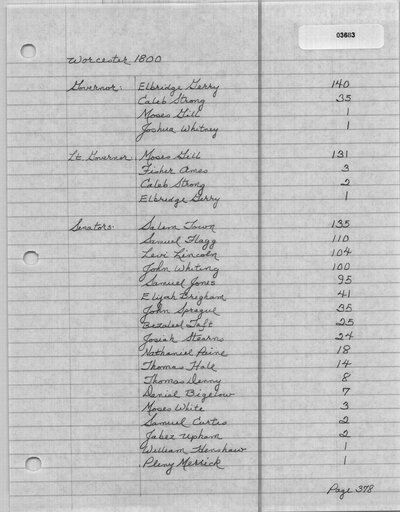 03683
Worcester 1800
Governor: Elbridge Gerry 140
Caleb Strong 35
Moses Gill 1
Joshua Whitney 1
Lt. Governor: Moses Gill 131
Fisher Ames 3
Caleb Strong 2
Elbridge Gerry 1
Senators: Salem Town 135
Samuel Flagg 110
Levi Lincoln 104
John Whiting 100
Samuel Jones 95
Elijah Brigham 41
John Sprague 35
Bezaleel Taft 25
Josiah Stearns 24
Nathaniel Paine 18
Thomas Hale 14
Thomas Denny 8
Daniel Bigelow 7
Moses White 3
Samuel Curtis 2
Jabez Upham 2
William Henshaw 1
Pliny Merrick 1
Page 378